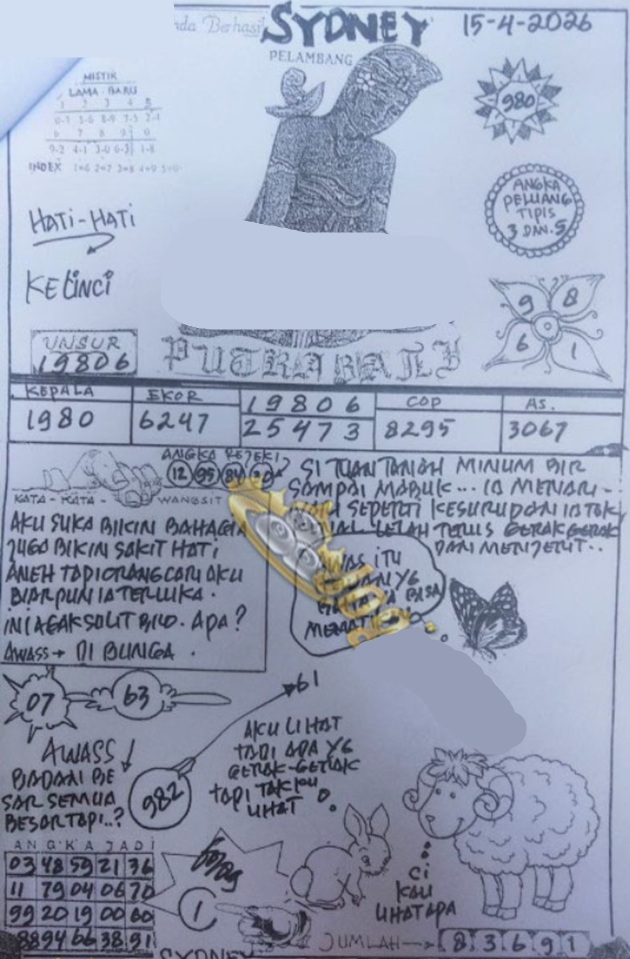 SYDNEY
15-4-2026
PELAMBANG
MISTIK
LAMA - BARU
1 2 3 4 5
6 7 8 9 0
INDEX
980
ANGKA
PELUANG
TIPIS
3 DAN. 5
HATI-HATI
KELINCI
9 8
6 1
UNSUR
19806
PUTRA BALI
KEPALA EKOR 19806 COP AS.
1980 6247 25473 8295 3067
ANGKA REJEKI
12 95 84
KATA - KATA - WANGSIT
AKU SUKA BIKIN BAHAGIA
JUGA BIKIN SAKIT HATI
ANEH TAPI ORANG CARI AKU
BIARPUN IA TERLUKA.
INI AGAK SULIT BRO. APA?
AWASS → DI BUNGA.
SI TUAN TANAH MINUM BIR
SAMPAI MABUK... IA MENARI-
SEPERTI KESURUPAN IA TAK
LELAH TERUS GERAK GERAK
DAN MENJERIT..
AWAS ITU
YG
BISA
07 63
61
AWASS!
BADAN BE
SAR SEMUA
BESAR TAPI..?
982
AKU LIHAT
TADI ADA YG
GERAK-GERAK
TAPI TAK KU
LIHAT
ANGKA JADI
03 48 59 21 36
11 79 04 06 70
99 20 19 00 60
88 94 66 38 91
1
CI
KAU
LIHAT APA
JUMLAH → 8 3 6 9 1
SYDNEY